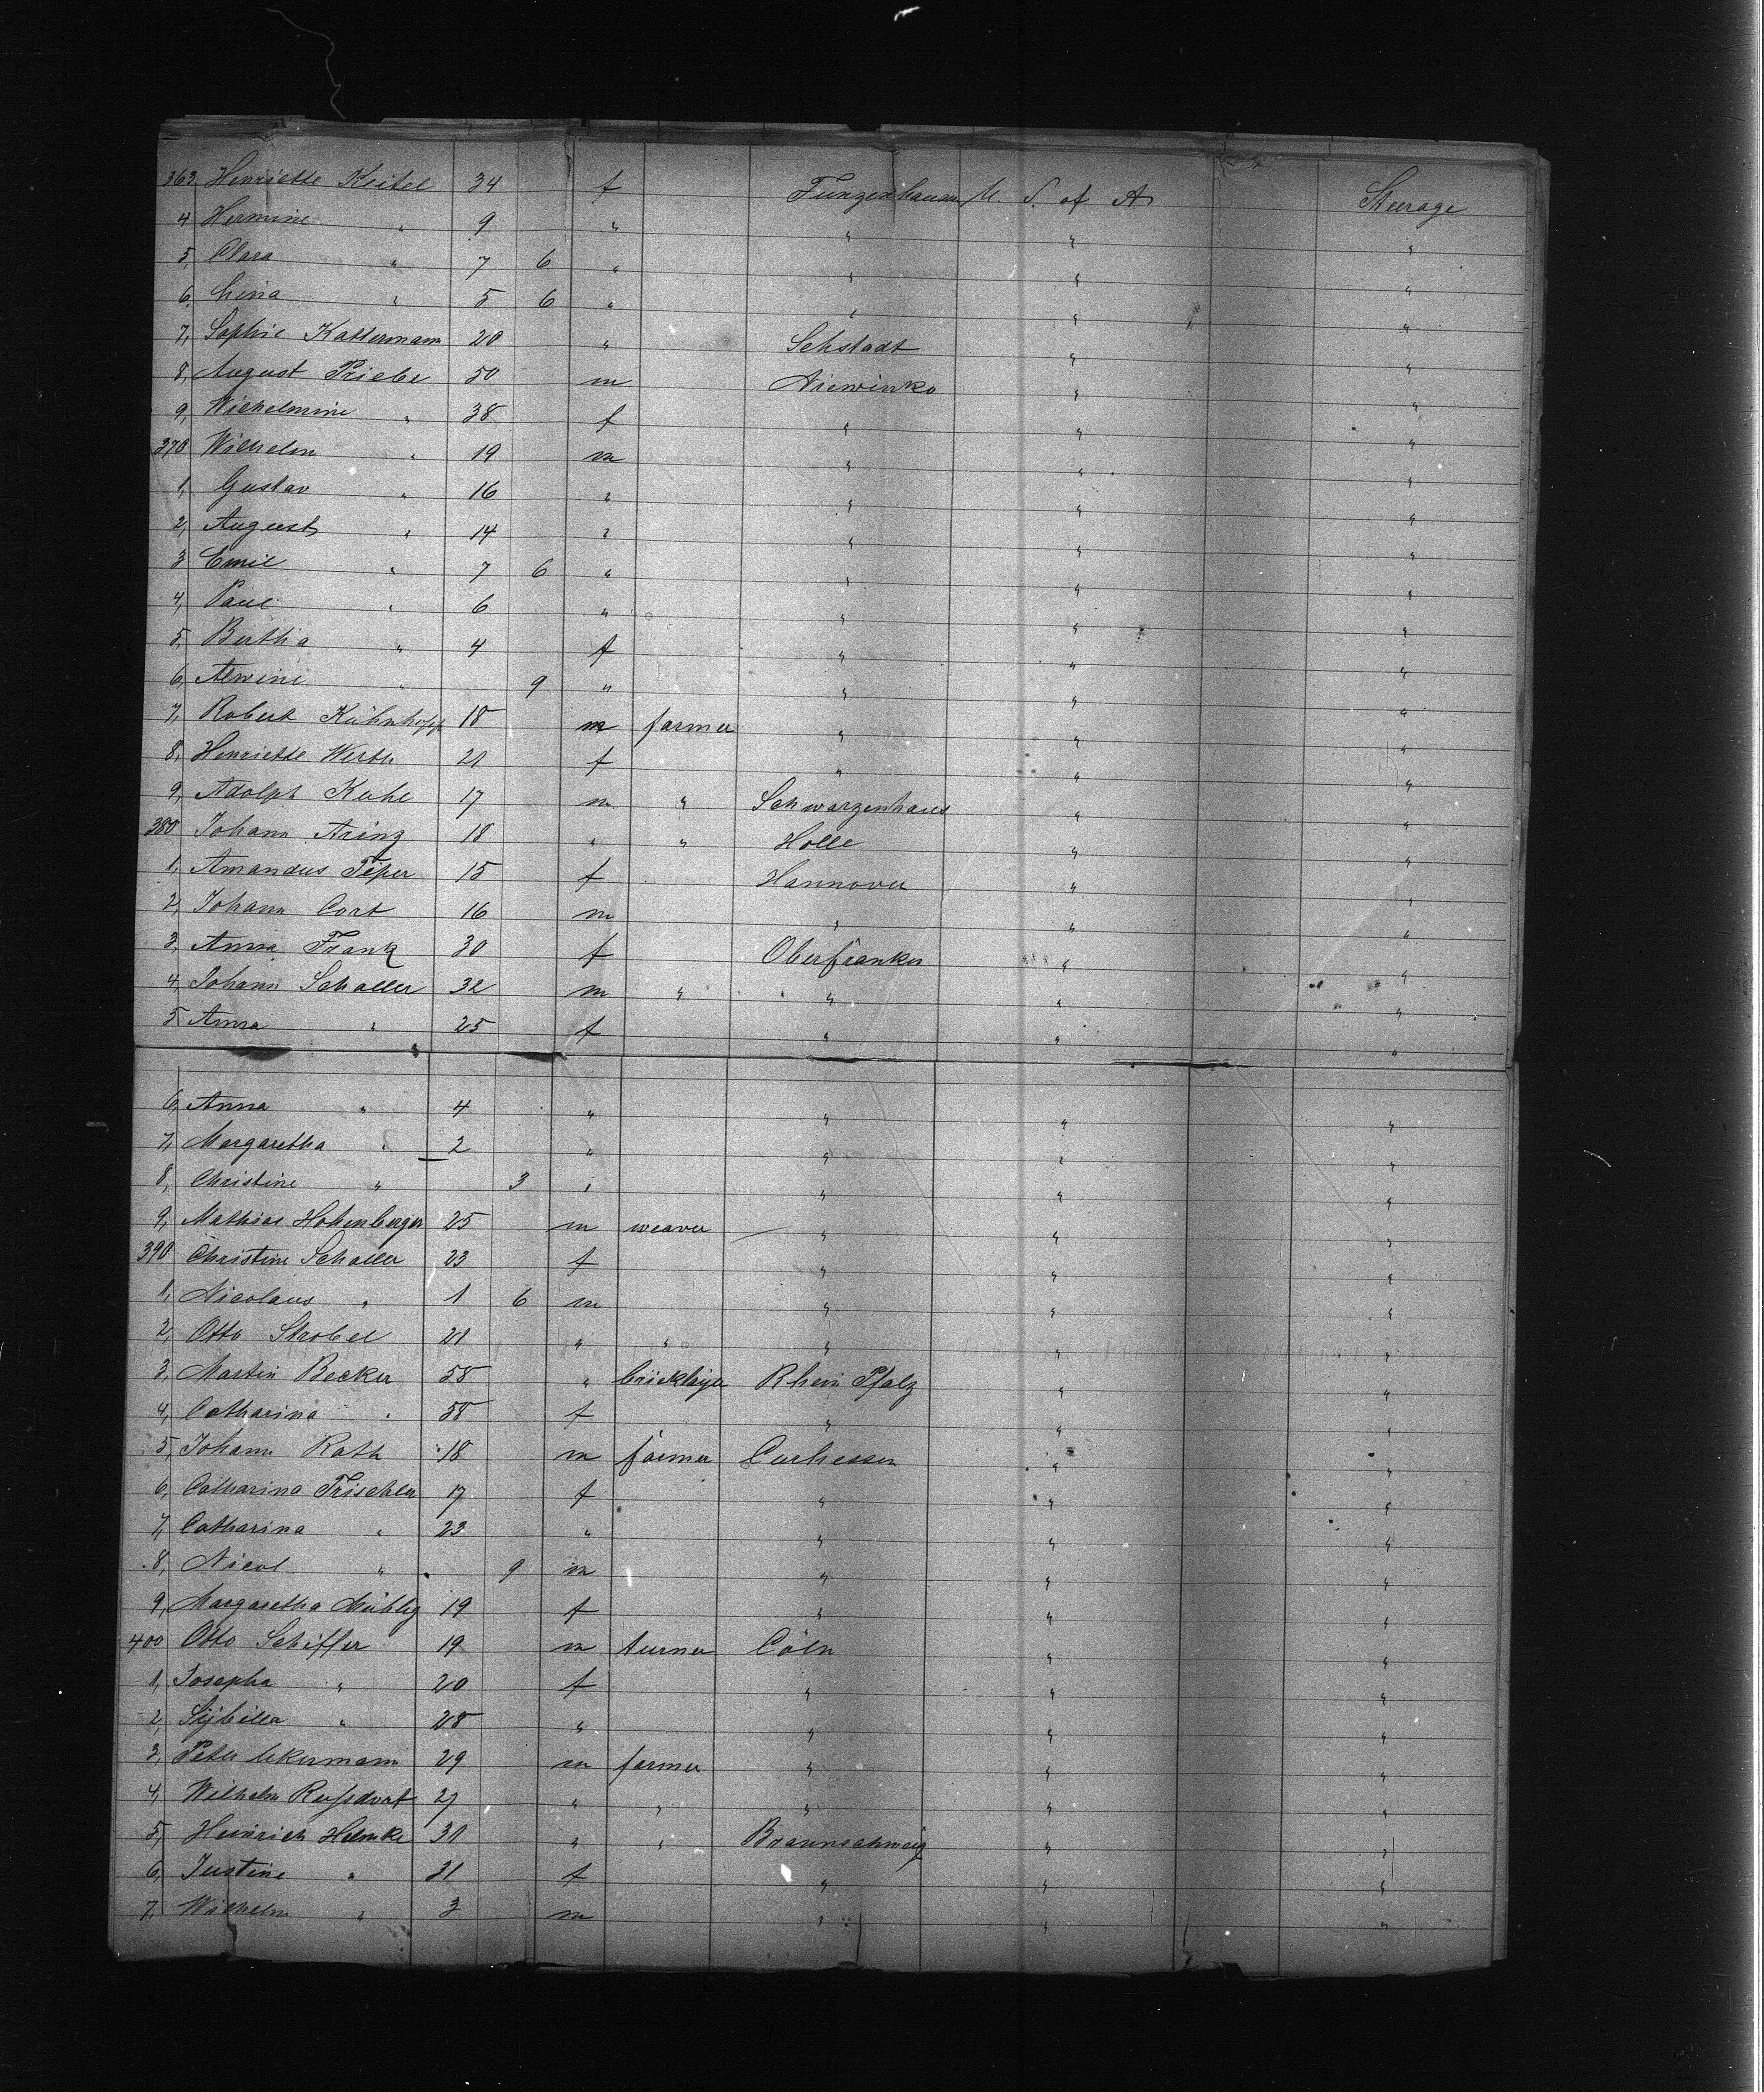 363 Henriette Keitel 34 f Fungenhausen U. S. of A Steerage
4 Hermine " 9 " " " "
5, Clara " 7 6 " " " "
6, Lina " 5 6 " " " "
7, Sophie Kattermann 20 " Sehstadt " "
8, August Priebe 50 m Niewinko " "
9, Wilhelmine " 38 f " " "
370 Wilhelm " 19 m " " "
1, Gustav " 16 " " " "
2, August " 14 " " " "
3 Emil " 7 6 " " " "
4, Paul " 6 " " " "
5, Bertha " 4 f " " "
6, Alwine " 9 " " " "
7, Robert Kühnhopp 18 m farmer " " "
8, Henriette Werth 21 f " " "
9, Adolph Kuhl 17 m " Schwarzenhaus " "
380 Johann Arinz 18 " " Holle " "
1, Amandus Peper 15 f Hannover " "
2, Johann Cort 16 m " " "
3, Anna Frank 30 f Oberfranken " "
4, Johann Schaller 32 m " " " "
5 Anna " 25 f " " "
6, Anna " 4 " " " "
7, Margaretha " 2 " " " "
8, Christine " 3 " " " "
9, Mathias Hohenberger 25 m weaver " " "
390 Christine Schaller 23 f " " "
1, Nicolaus " 1 6 m " " "
2, Otto Strobel 21 " " " " "
3, Martin Becker 58 " bricklayer Rhein Pfalz " "
4, Catharina " 58 f " " "
5, Johann Rath 18 m farmer Curhessen " "
6, Catharina Trischler 17 f " " "
7, Catharina " 23 " " " "
8, Nicol " 9 m " " "
9, Margaretha Mühlig 19 f " " "
400 Otto Schiffer 19 m turner Cöln " "
1, Josepha " 20 f " " "
2, Sybilla " 28 " " " "
3, Peter Ukermann 29 m farmer " " "
4, Wilhelm Rußdorf 27 " " " " "
5, Heinrich Helmke 31 " " Braunschweig " "
6, Justine " 31 f " " "
7, Wilhelm " 3 m " " "